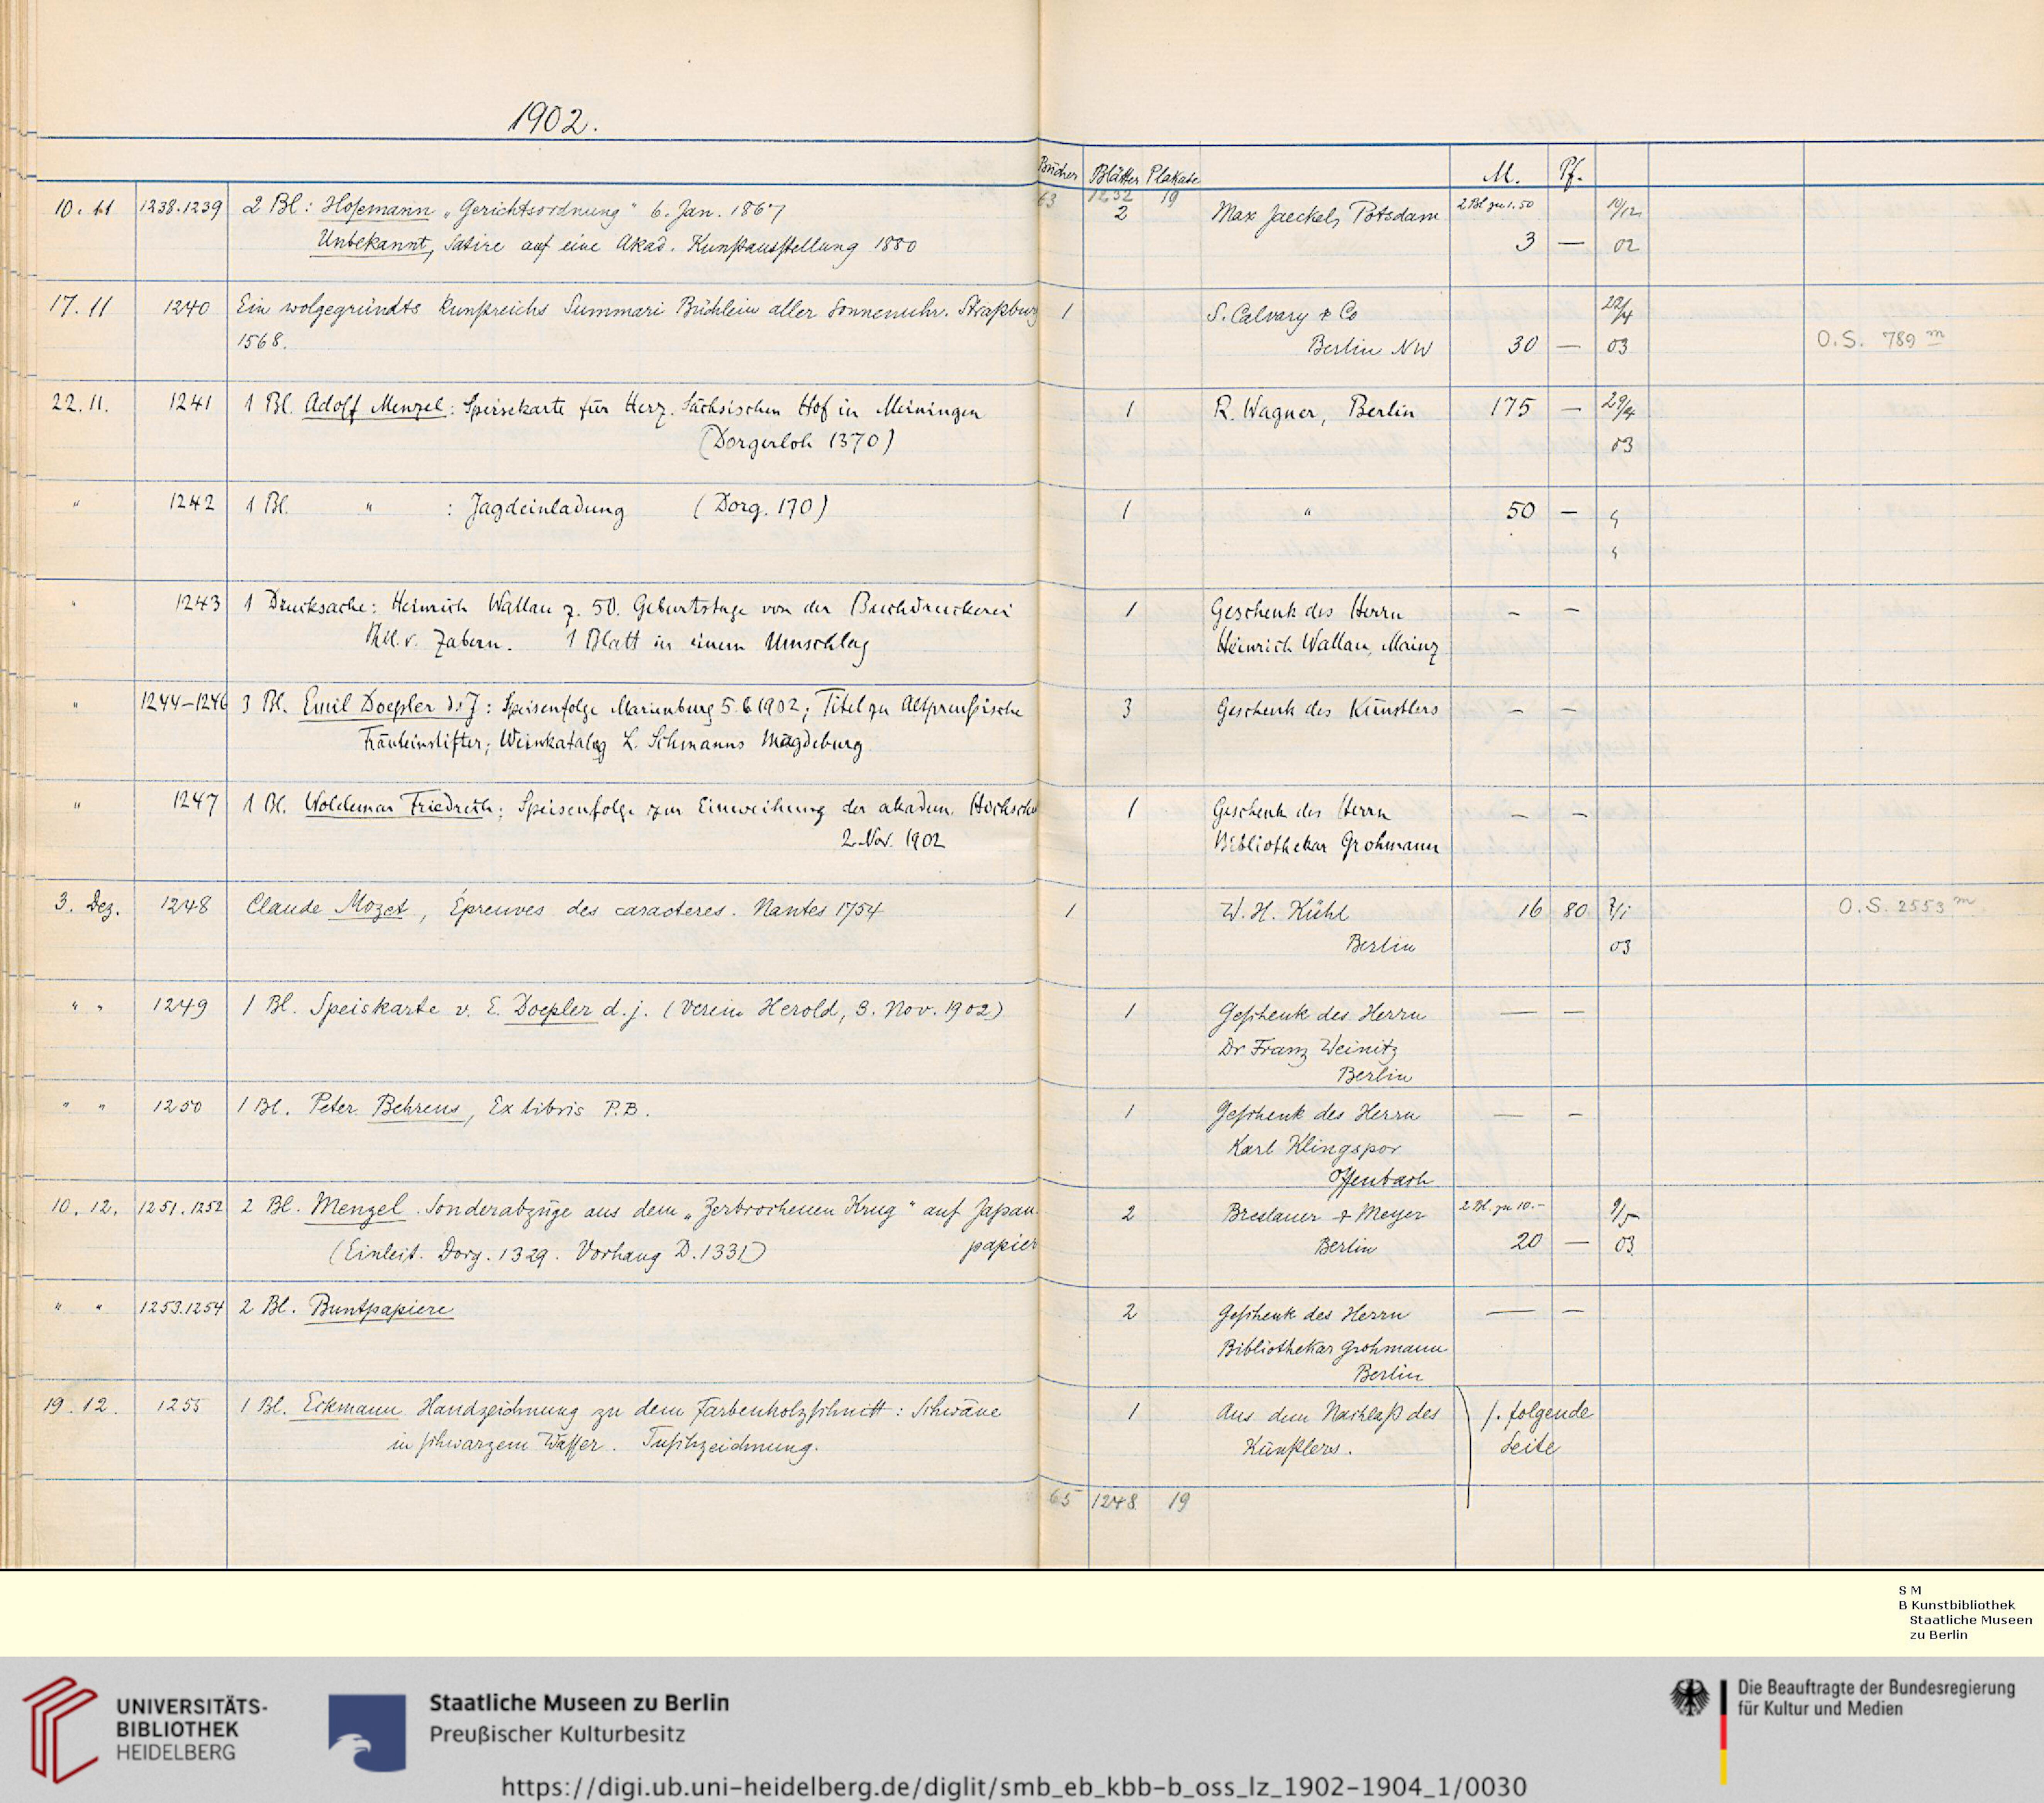 1902.
Bücher Blätter Plakate M. Pf.
63 1232 19
10. 11 1238.1239 2 Bl: Hosemann „Gerichtsordnung“ 6. Jan. 1867 2 Max Jaeckel, Potsdam 2 Bl zu 1.50 10/12
Unbekannt, Satire auf eine Akad. Kunstausstellung 1880 3 — 02
17. 11 1240 Ein wolgegründts kunstreichs Summari Büchlein aller Sonnenuhr. Straßburg 1 S. Calvary & Co 22/4
1568. Berlin NW 30 — 03 O.S. 789 m
22. 11. 1241 1 Bl. Adolf Menzel: Speisekarte für Herz. Sächsischen Hof in Meiningen 1 R. Wagner, Berlin 175 — 29/4
(Dorgerloh 1370) 03
" 1242 1 Bl. " : Jagdeinladung (Dorg. 170) 1 " 50 — "
"
" 1243 1 Drucksache: Heinrich Wallau z. 50. Geburtstage von der Buchdruckerei 1 Geschenk des Herrn — —
Phil. v. Zabern. 1 Blatt in einem Umschlag Heinrich Wallau, Mainz
" 1244–1246 3 Bl. Emil Doepler d. J: Speisenfolge Marienburg 5. 6 1902; Titel zu Altpreußische 3 Geschenk des Künstlers — —
Fräuleinstifter; Weinkatalog L. Magdeburg
" 1247 1 Bl. Woldemar Friedrich; Speisenfolge zur Einweihung der akadem. Hochsch 1 Geschenk des Herrn — —
2. Nov. 1902 Bibliothekar Grohmann
3. Dez. 1248 Claude Mozet, Épreuves des caracteres. Nantes 1754 1 W. H. Kühl 16 80 7/1 O.S. 2553 m
Berlin 03
" " 1249 1 Bl. Speiskarte v. E. Doepler d. j. (Verein Herold, 3. Nov. 1902) 1 Geschenk des Herrn — —
Dr Franz Weinitz
Berlin
" " 1250 1 Bl. Peter Behrens, Ex libris P.B. 1 Geschenk des Herrn — —
Karl Klingspor
Offenbach
10. 12. 1251.1252 2 Bl. Menzel. Sonderabzüge aus dem „Zerbrochenen Krug“ auf Japan- 2 Breslauer & Meyer 2 Bl. zu 10.— 9/5
(Einleit. Dorg. 1329. Vorhang D. 1331) papier Berlin 20 — 03
" " 1253.1254 2 Bl. Buntpapiere 2 Geschenk des Herrn — —
Bibliothekar Grohmann
Berlin
19. 12. 1255 1 Bl. Eckmann Handzeichnung zu dem Farbenholzschnitt: Schwäne 1 Aus dem Nachlaß des s. folgende
in schwarzem Wasser. Tuschzeichnung. Künstlers. Seite
65 1248 19
S M
B Kunstbibliothek
Staatliche Museen
zu Berlin
UNIVERSITÄTS-
BIBLIOTHEK
HEIDELBERG
Staatliche Museen zu Berlin
Preußischer Kulturbesitz
Die Beauftragte der Bundesregierung
für Kultur und Medien
https://digi.ub.uni-heidelberg.de/diglit/smb_eb_kbb-b_oss_lz_1902-1904_1/0030